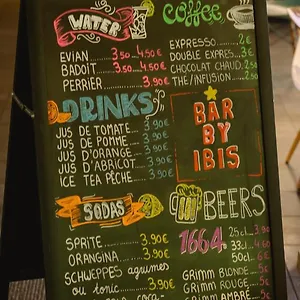 WATER
EVIAN 3.50 4.50€
BADOÎT 3.50 4.50€
PERRIER 3.90€
Coffee
EXPRESSO 2€
DOUBLE EXPRES 3€
CHOCOLAT CHAUD 2.50
THE/INFUSION 2.50
DRINKS
JUS DE TOMATE 3.90€
JUS DE POMME 3.90€
JUS D'ORANGE 3.90€
JUS D'ABRICOT 3.90€
ICE TEA PÊCHE 3.90€
BAR
BY
IBIS
SODAS
SPRITE 3.90€
ORANGINA 3.90€
SCHWEPPES agumes
ou tonic 3.90€
BEERS
1664
25cl 3.90
33cl 4.60
50cl 6€
GRIMM BLONDE 5€
GRIMM ROUGE 5€
GRIMM AMBRE